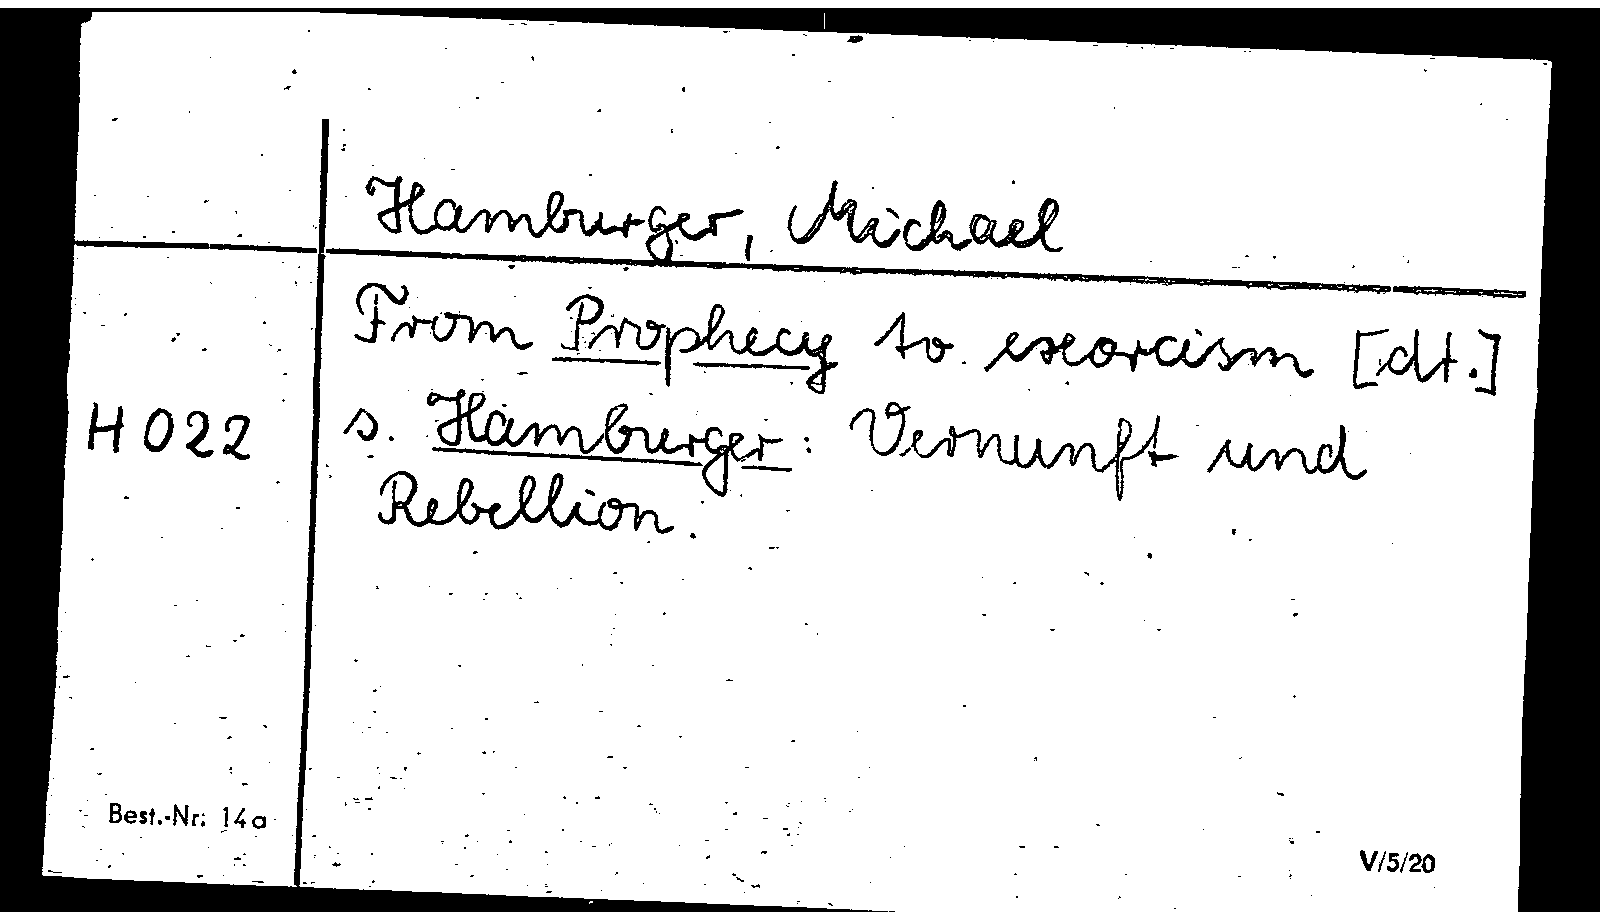 Hamburger, Michael
From Prophecy to exorcism [dt.]
H 022 s. Hamburger: Vernunft und
Rebellion.
Best.-Nr. 14a
V/5/20